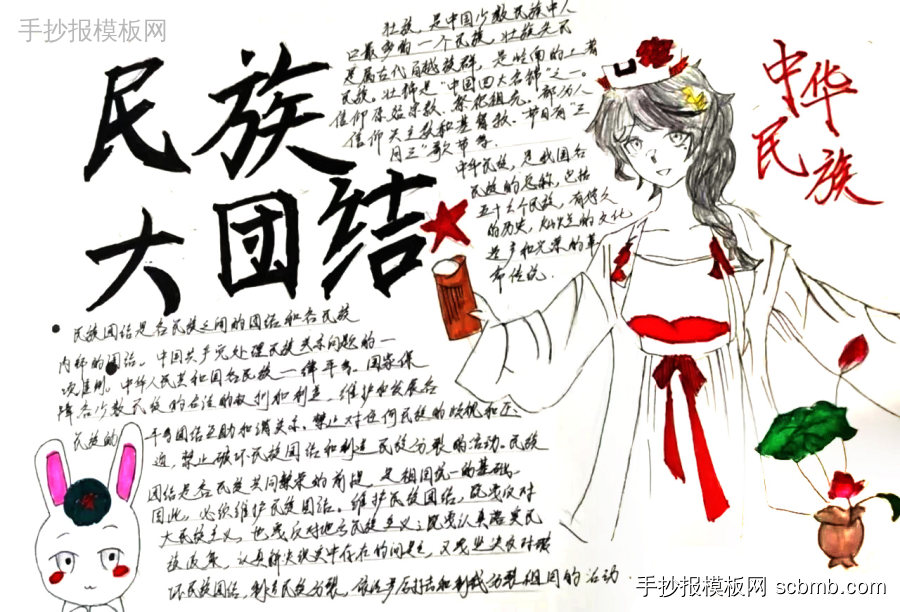 手抄报模板网
民族
大团结
中华
民族
壮族，是中国少数民族中人
口最多的一个民族，壮族先民
是属古代百越族群，是岭南的土著
民族。壮锦是“中国四大名锦”之一。
信仰原始宗教、祭祀祖先、部分人
信仰天主教和基督教。节日有“三
月三”歌节等.
中华民族，是我国各
民族的总称，包括
五十六个民族，有悠久
的历史，灿烂的文化
和光荣的革
命传统.
民族团结是各民族之间的团结和各民族
内部的团结。中国共产党处理民族关系问题的一
准则。中华人民共和国各民族一律平等。国家保
障各少数民族的合法的权利和利益，维护和发展各
民族的平等团结互助和谐关系。禁止对任何民族的歧视和压
迫，禁止破坏民族团结和制造民族分裂的活动。民族
团结是各民族共同繁荣的前提，是祖国统一的基础。
因此，必须维护民族团结。维护民族团结，既要反对
大民族主义，也要反对地方民族主义；既要认真落实民
族政策，认真解决中存在的问题，又要坚决反对破
坏民族团结，制造民族分裂，依法打击和制裁分裂祖国的活动.
手抄报模板网 scbmb.com